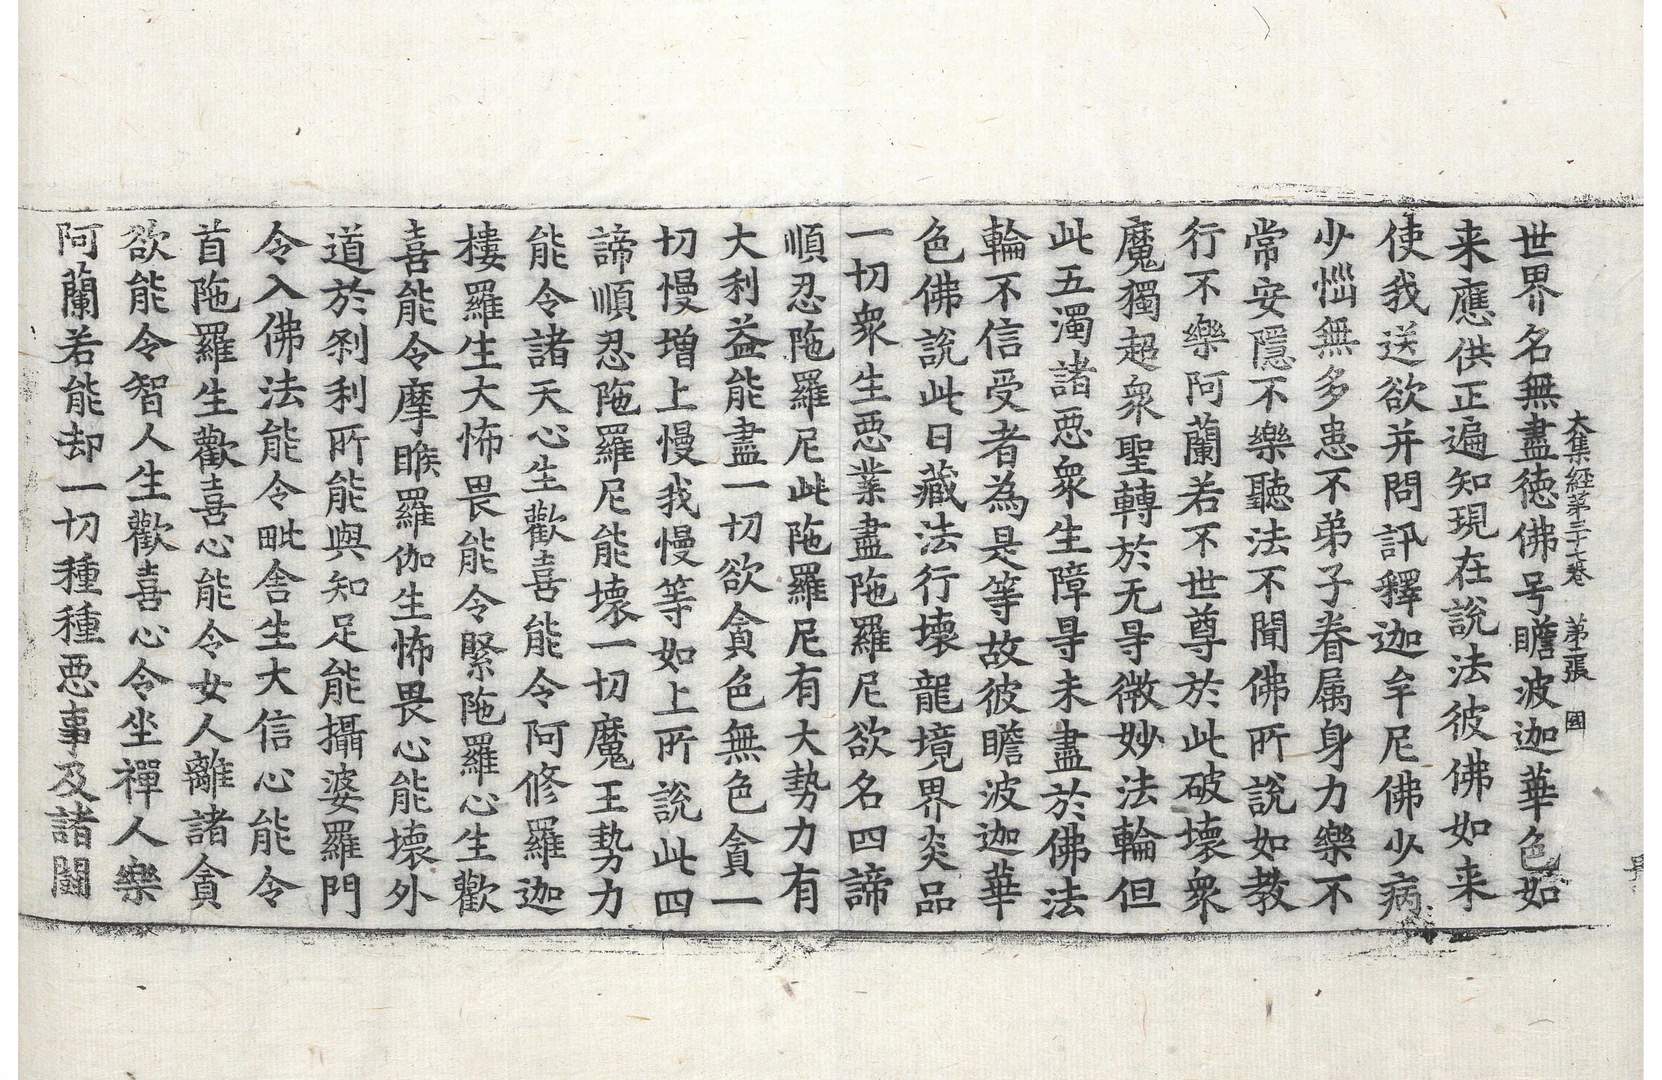 大集經第三十七卷　第三張　國
世界名無盡德佛号瞻波迦華色如
来應供正遍知現在說法彼佛如来
使我送欲并問訊釋迦牟尼佛少病
少惱無多患不弟子眷属身力樂不
常安隱不樂聽法不聞佛所說如教
行不樂阿蘭若不世尊於此破壞衆
魔獨超衆聖轉於无㝵微妙法輪但
此五濁諸惡衆生障㝵未盡於佛法
輪不信受者為是等故彼瞻波迦華
色佛說此日藏法行壞龍境界炎品
一切衆生惡業盡陁羅尼欲名四諦
順忍陁羅尼此陁羅尼有大勢力有
大利益能盡一切欲貪色無色貪一
切慢增上慢我慢等如上所說此四
諦順忍陁羅尼能壞一切魔王勢力
能令諸天心生歡喜能令阿修羅迦
樓羅生大怖畏能令緊陁羅心生歡
喜能令摩睺羅伽生怖畏心能壞外
道於刹利所能與知足能攝婆羅門
令入佛法能令毗舍生大信心能令
首陁羅生歡喜心能令女人離諸貪
欲能令智人生歡喜心令坐禪人樂
阿蘭若能却一切種種惡事及諸鬪